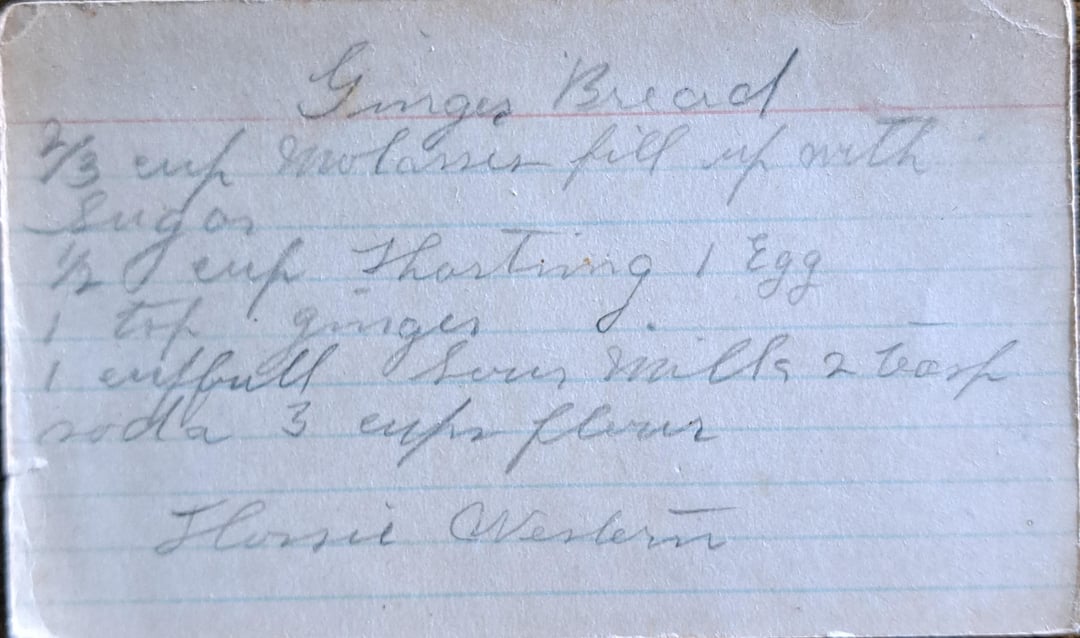 Ginger Bread
2/3 cup Molasses fill up with
Sugar
1/2 cup Shorting 1 Egg
1 tsp ginger
1 cupfull Sour Milk 2 teasp
soda 3 cups flour
Flossie Western